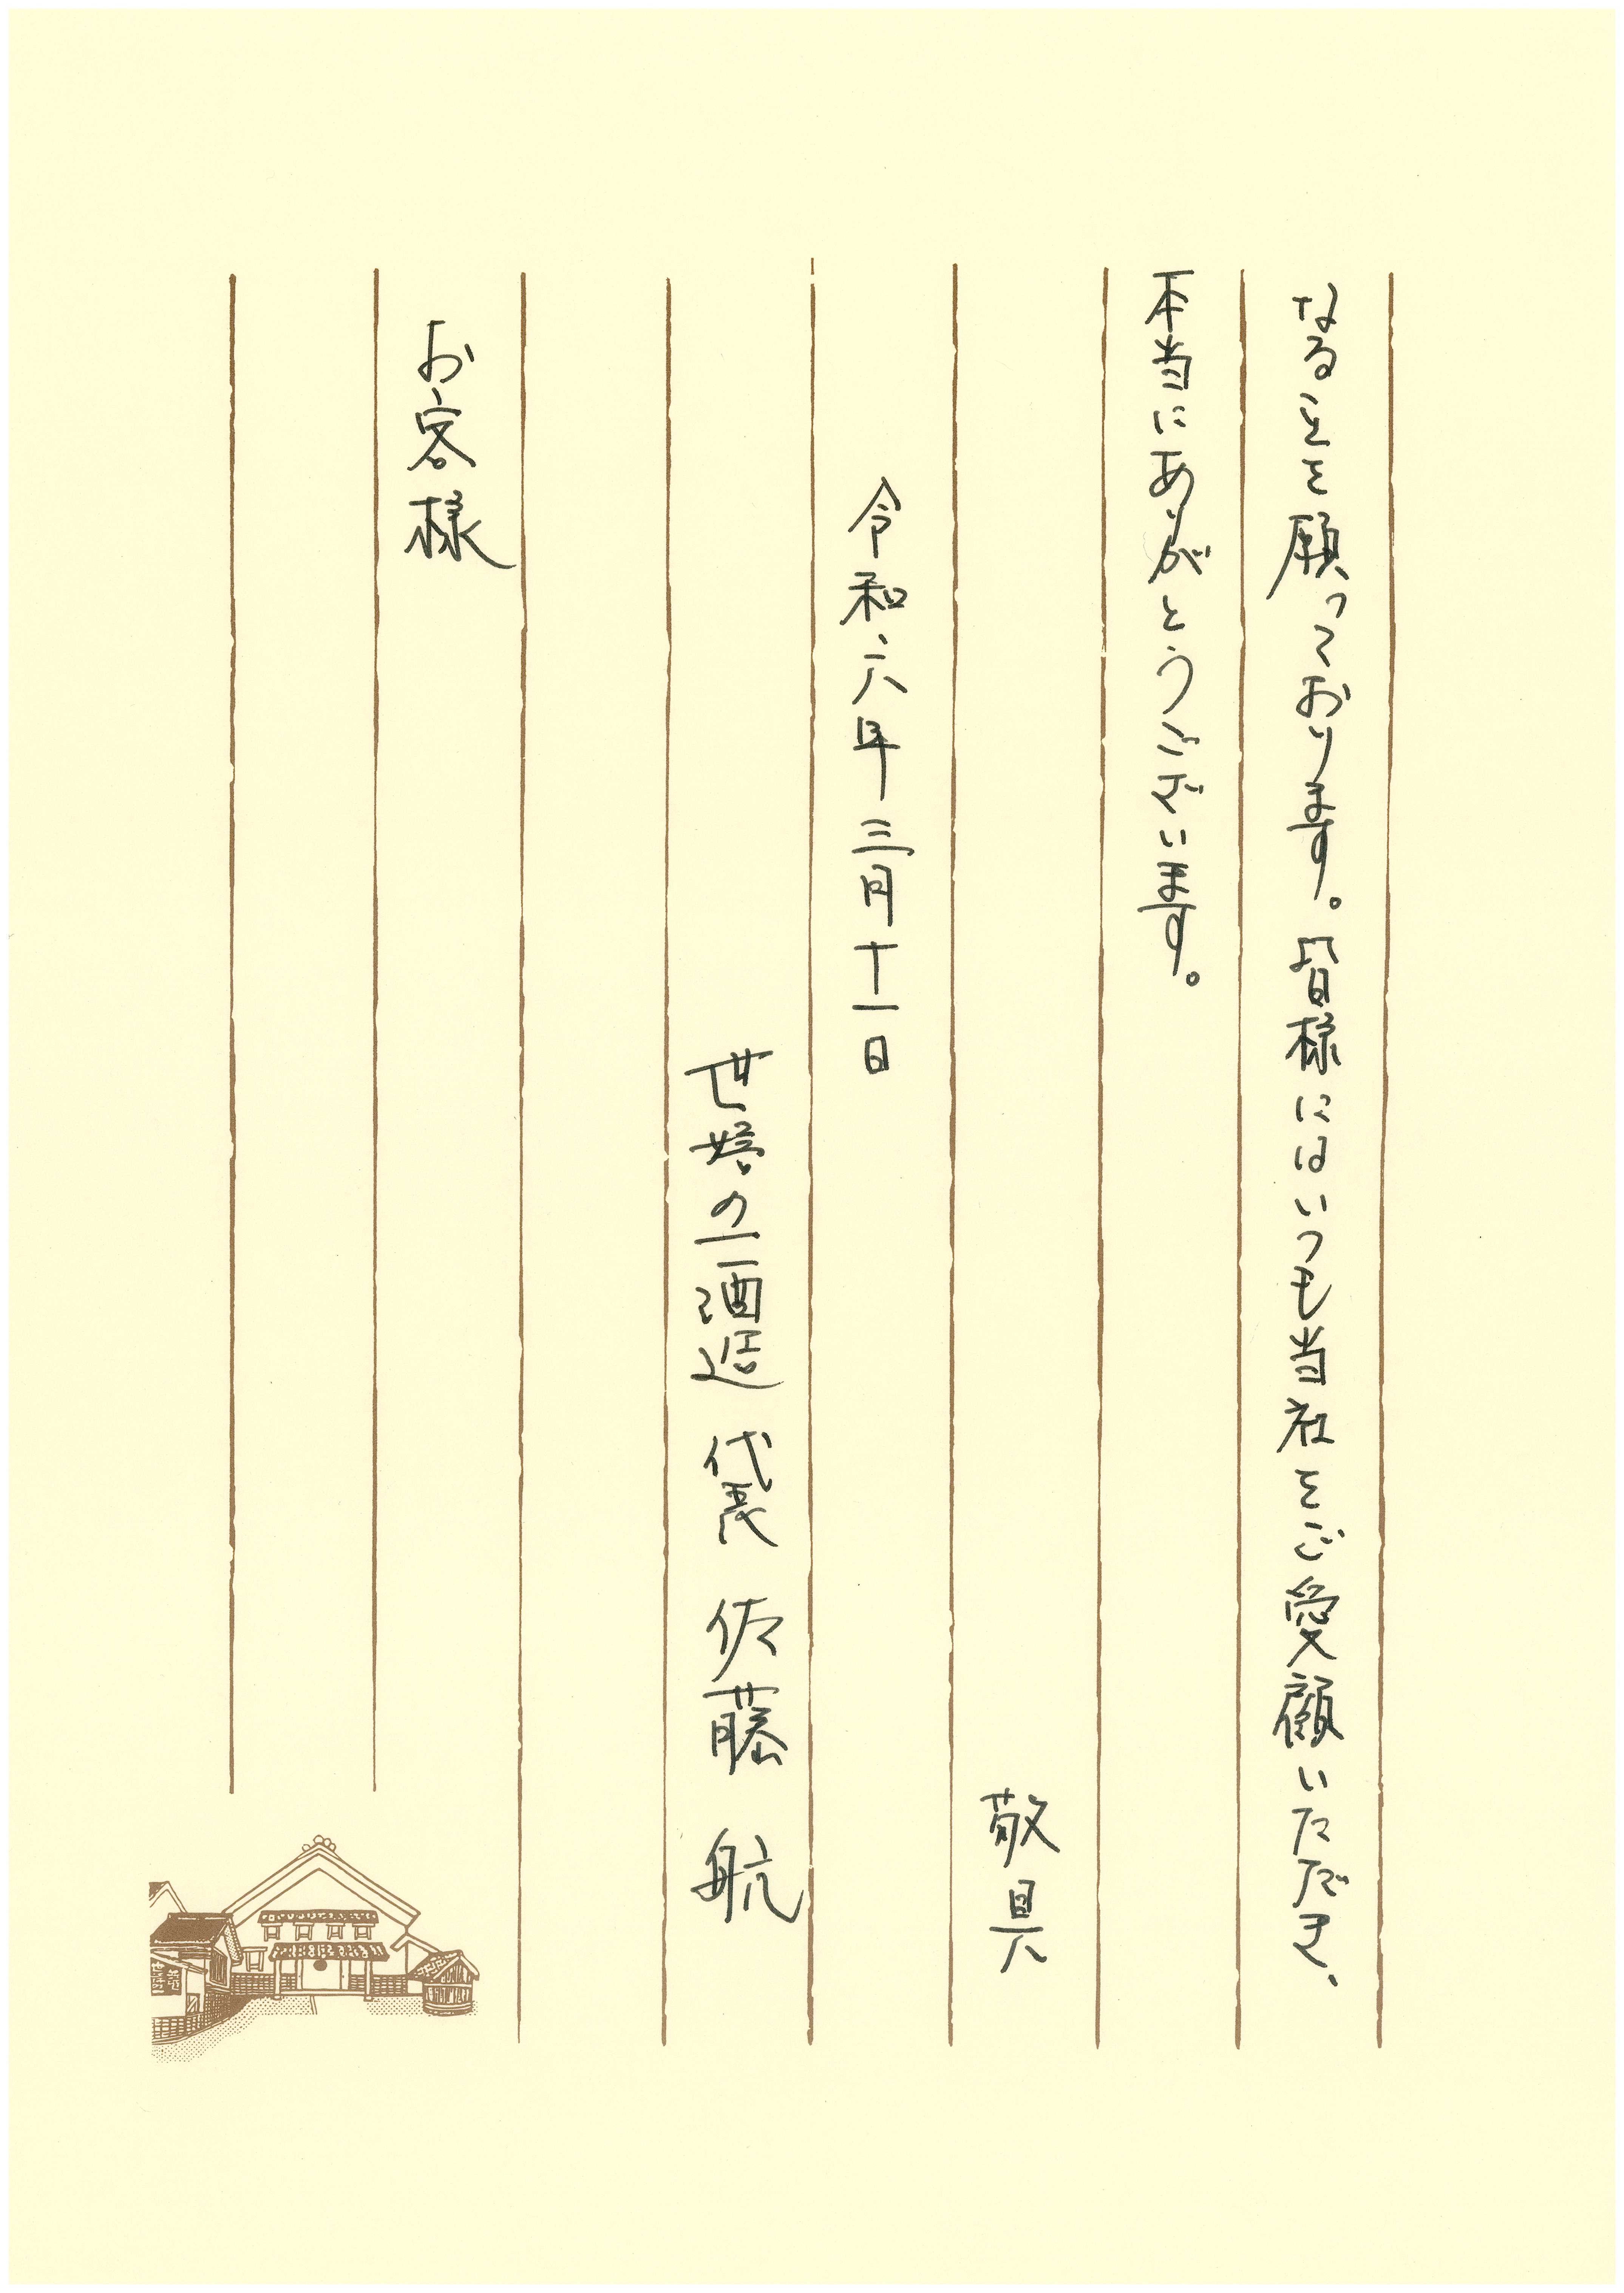 なることを願っております。皆様にはいつも当社をご愛顧いただき、
本当にありがとうございます。
敬具
令和六年三月十一日
世嬉の一酒造 代表 佐藤 航
お客様